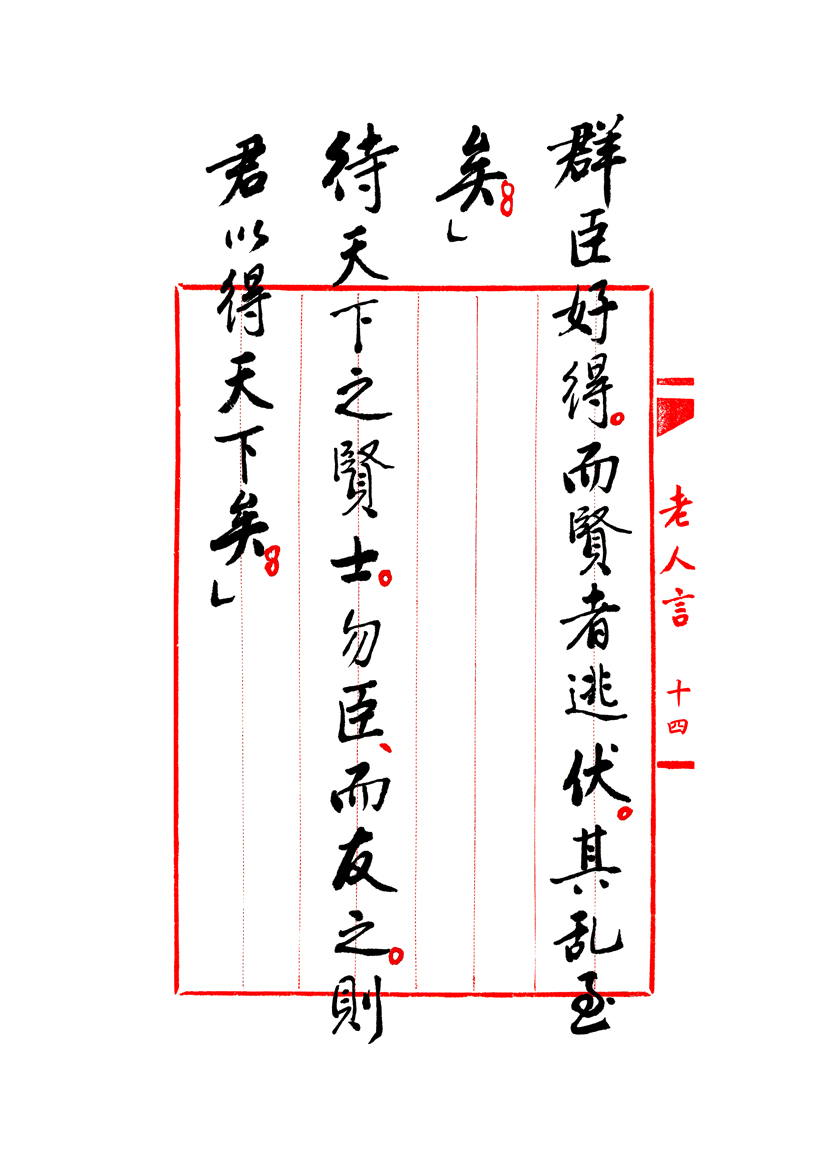 群臣好得。而賢者逃伏。其乱至
矣。」
待天下之賢士。勿臣、而友之。則
君以得天下矣。」
老人言 十四